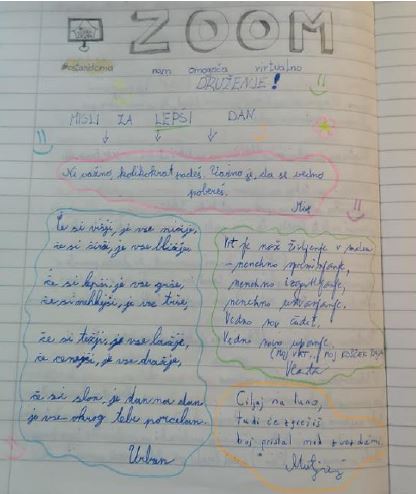 ZOOM
#ostanidoma nam omogoča virtualno
DRUŽENJE!
MISLI ZA LEPŠI DAN
Ni važno, kolikokrat padeš. Važno je, da se vedno
pobereš.
Če si višji, je vse nižje,
če si širši, je vse bližje,
če si lepši, je vse grše,
če si mehkejši, je vse trše,
če si težji, je vse lažje,
če cenejši, je vse dražje,
če si slon, je dan na dan
je vse okrog tebe porcelan.
Urban
Vrt je naš življenje v malem
- nenehno spreminjanje,
nenehno izgubljanje,
nenehno ustvarjanje.
Vedno nov čudež,
Vedno novo upanje.
(MOJ VRT, MOJ KOŠČEK RAJA)
Ciljaj na luno,
tudi če zgrešiš
boš pristal med zvezdami.